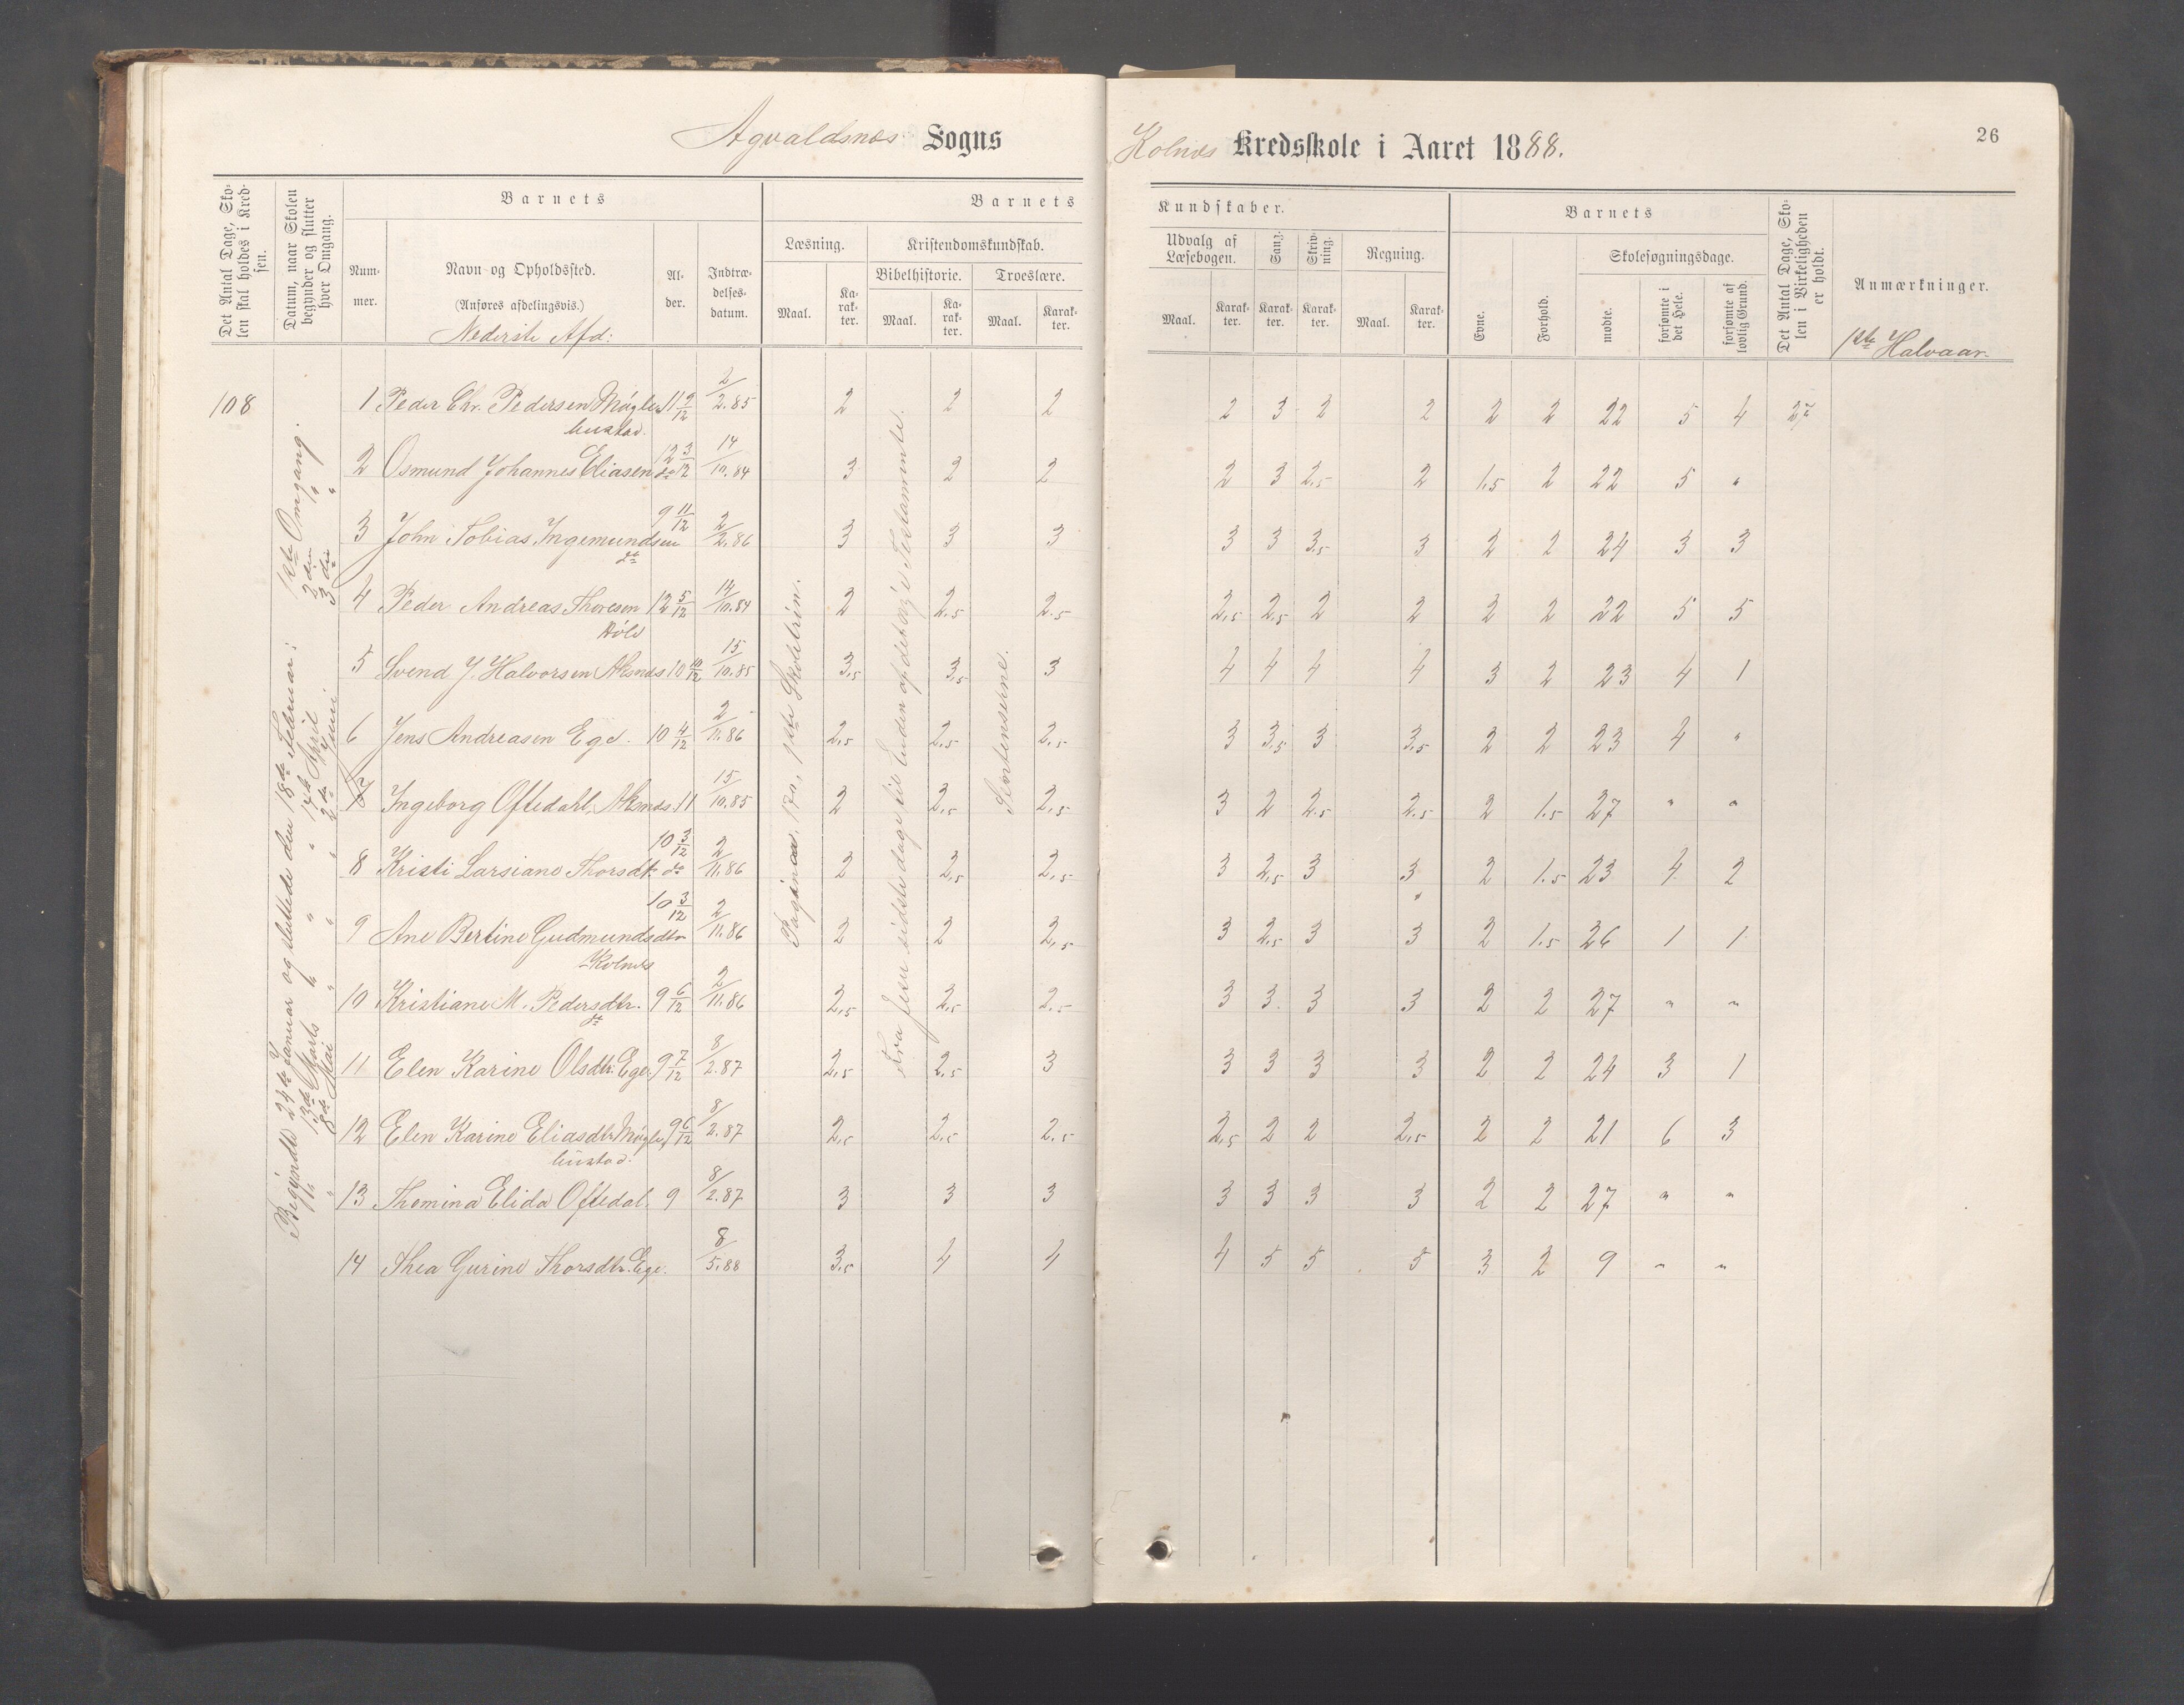 Agvaldsnes Sogns
Kolnes Kredsskole i Aaret 1888.
26
Det Antal Dage, Sko-
len skal holdes i Kred-
sen.
Datum, naar Skolen
begynder og slutter
hver Omgang.
Barnets
Num-
mer.
Navn og Opholdssted.
(Anføres afdelingsvis.)
Nederste Afd:
Al-
der.
Indtræ-
delses-
datum.
Barnets
Læsning.
Maal.
Ka-
rak-
ter.
Kristendomskundskab.
Bibelhistorie.
Maal.
Ka-
rak-
ter.
Troeslære.
Maal.
Karak-
ter.
Kundskaber.
Udvalg af
Læsebogen.
Maal.
Karak-
ter.
Sang.
Karak-
ter.
Skriv-
ning.
Karak-
ter.
Regning.
Maal.
Karak-
ter.
Barnets
Evne.
Forhold.
Skolesøgningsdage.
mødte.
forsømte i
det Hele.
forsømte af
lovlig Grund.
Det Antal Dage, Sko-
len i Virkeligheden
er holdt.
Anmærkninger.
1ste Halvaar.
108
Begyndte 24de Januar og sluttede den 18de Februar: 1ste Omgang.
" 13de Marts " " " 14de April 2den "
" 8de Mai " " " 2den Juni 3die "
Pagina 170, 1ste Skoletrin.
Fra Jesu sidste dage til Enden af det nye Testamente.
Sentenserne.
1 Peder Chr. Pedersen Møgle- 11 9/12 2/2.85 2 2 2 2 3 2 2 2 2 22 5 4 27
bustad.
2 Osmund Johannes Eliasen do 12 3/12 14/10.84 3 2 2 2 3 2.5 2 1.5 2 22 5 "
3 John Tobias Ingemundsen 9 11/12 2/2.86 3 3 3 3 3 3.5 3 2 2 24 3 3
do
4 Peder Andreas Thoresen 12 5/12 14/10.84 2 2.5 2.5 2.5 2.5 2 2 2 2 22 5 5
5 Svend J. Halvorsen Aksnes 10 10/12 15/10.85 3.5 3.5 3 4 4 4 4 3 2 23 4 1
6 Jens Andreasen Ege. 10 4/12 2/11.86 2.5 2.5 2.5 3 3.5 3 3.5 2 2 23 4 "
7 Ingeborg Oftedahl, Aksnes. 11 15/10.85 2 2.5 2.5 3 2 2.5 2.5 2 1.5 27 " "
8 Kristi Larsiane Thorsdtr do 10 3/12 2/11.86 2 2.5 2.5 3 2.5 3 3 2 1.5 23 4 2
9 Ane Bertine Gudmundsdtr 10 3/12 2/11.86 2 2 2.5 3 2.5 3 3 2 1.5 26 1 1
Kolnes
10 Kristiane M. Pedersdtr. 9 6/12 2/11.86 2.5 2.5 2.5 3 3 3 3 2 2 27 " "
do
11 Elen Karine Olsdtr. Ege. 9 7/12 8/2.87 2.5 2.5 3 3 3 3 3 2 2 24 3 1
12 Elen Karine Eliasdtr Møgle- 9 6/12 8/2.87 2.5 2.5 2.5 2.5 2 2 2.5 2 2 21 6 3
bustad.
13 Themina Elida Oftedal. 9 8/2.87 3 3 3 3 3 3 3 2 2 27 " "
14 Thea Gurine Thorsdtr. Ege. 8/5.88 3.5 4 4 4 5 5 5 3 2 9 " "